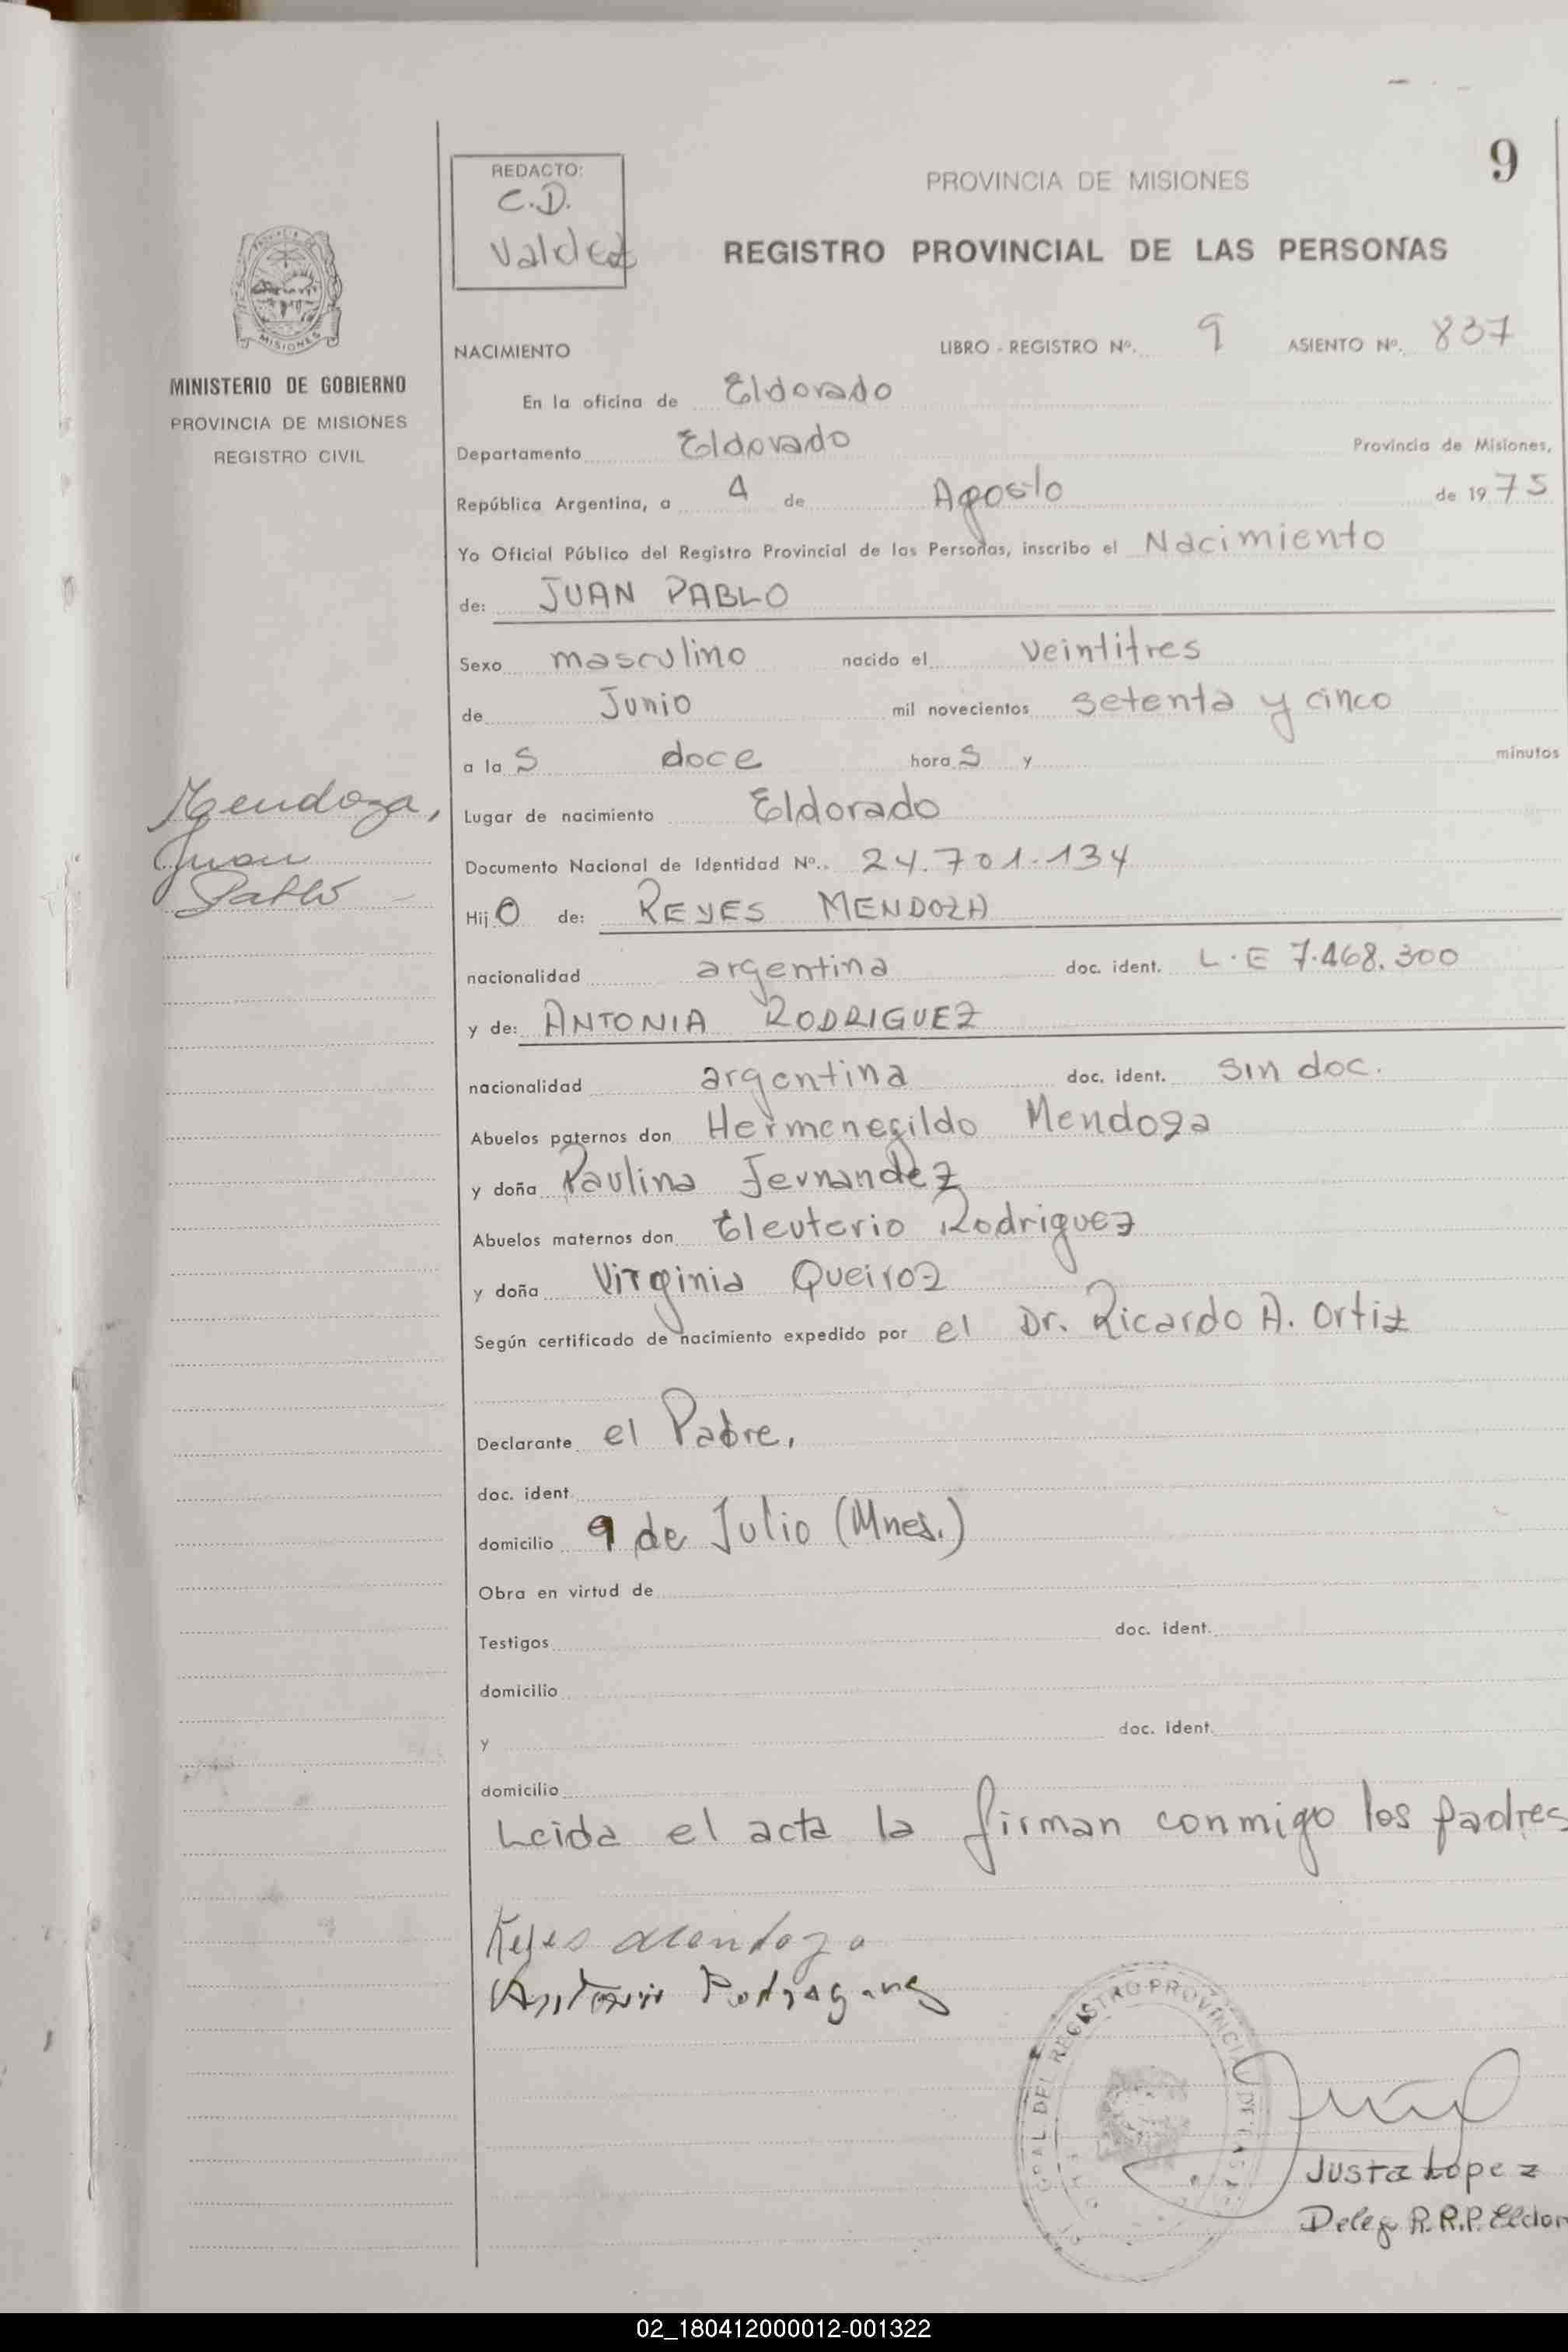 9
REDACTO:
C.D.
Valdez
PROVINCIA DE MISIONES
REGISTRO PROVINCIAL DE LAS PERSONAS
MISIONES
MINISTERIO DE GOBIERNO
PROVINCIA DE MISIONES
REGISTRO CIVIL
NACIMIENTO LIBRO - REGISTRO Nº. 9 ASIENTO Nº. 837
En la oficina de Eldorado
Departamento Eldorado Provincia de Misiones,
República Argentina, a 4 de Agosto de 1975
Yo Oficial Público del Registro Provincial de las Personas, inscribo el Nacimiento
de: JUAN PABLO
Sexo masculino nacido el veintitres
de Junio mil novecientos setenta y cinco
a la s doce hora s y minutos
Mendoza,
Juan
Pablo
Lugar de nacimiento Eldorado
Documento Nacional de Identidad Nº. 24.701.134
Hijo de: REYES MENDOZA
nacionalidad argentina doc. ident. L.E 7.468.300
y de: ANTONIA RODRIGUEZ
nacionalidad argentina doc. ident. sin doc.
Abuelos paternos don Hermenegildo Mendoza
y doña Paulina Fernandez
Abuelos maternos don Eleuterio Rodriguez
y doña Virginia Queiroz
Según certificado de nacimiento expedido por el Dr. Ricardo A. Ortiz
Declarante el Padre,
doc. ident.
domicilio 9 de Julio (Mnes.)
Obra en virtud de
Testigos doc. ident.
domicilio
y doc. ident.
domicilio
Leida el acta la firman conmigo los padres
Reyes Mendoza
DEL REGISTRO PROVINCIAL DE LAS
Justa Lopez
Deleg R.R.P. Eldor
02_180412000012-001322